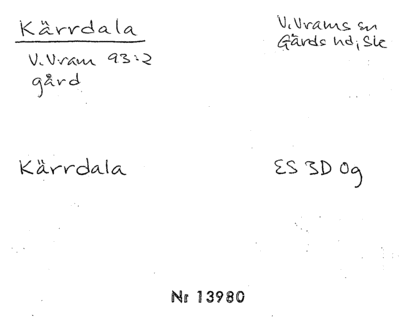 Kärrdala
V. Vrams sn
Gärds hd, Sk
V. Vram 93:2
gård
Kärrdala
ES 3D 0g
Nr 13980